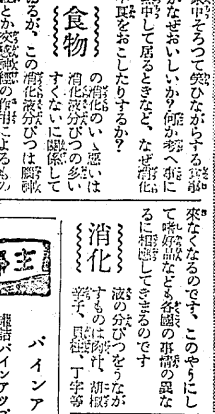 中そろつて笑ひながらする食事
がなぜおいしいか？何か考へ事に
中して居るときなど、なぜ消化
食をおこしたりするか？
食物
の消化のいゝ悪いは
消化液分びつの多い
すくないに関係して
るが、この消化液分びつは
來なくなるのです、このやうにし
て嗜好品なども各國の事情の異な
るに相應してきまるのです
消化
液の分びつをうなが
すものは肉汁、胡椒
辛子、丁字等
主
パインア